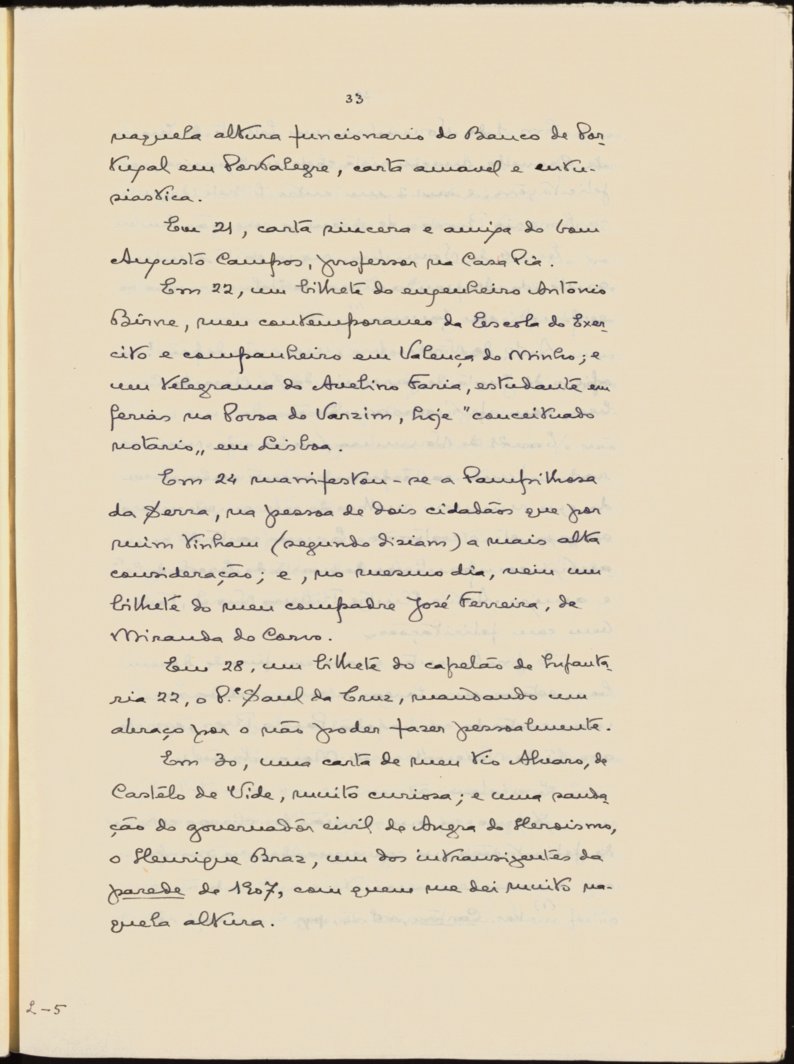 33
naquela altura funcionario do Banco de Por-
tugal em Portalegre, carta amavel e entu-
siastica.
Em 21, carta sincera e amiga do bom
Augusto Campos, professor na Casa Pia.
Em 22, um bilhete do engenheiro António
Birne, meu contemporaneo da Escola do Exer-
cito e companheiro em Valença do Minho; e
um telegrama do Avelino Faria, estudante em
ferias na Povoa do Varzim, hoje "conceituado
notario„ em Lisboa.
Em 24 manifestou-se a Pampilhosa
da Serra, na pessoa de dois cidadãos que por
mim tinham (segundo diziam) a mais alta
consideração; e, no mesmo dia, veiu um
bilhete do meu compadre José Ferreira, de
Miranda do Corvo.
Em 28, um bilhete do capelão de Infanta-
ria 22, o P.e Saul da Cruz, mandando um
abraço por o não poder fazer pessoalmente.
Em 30, uma carta de meu tio Alvaro, de
Castélo de Vide, muito curiosa; e uma sauda-
ção do governadôr civil de Angra do Heroismo,
o Henrique Braz, um dos intransigentes da
parede de 1907, com quem me dei muito na-
quela altura.
L-5